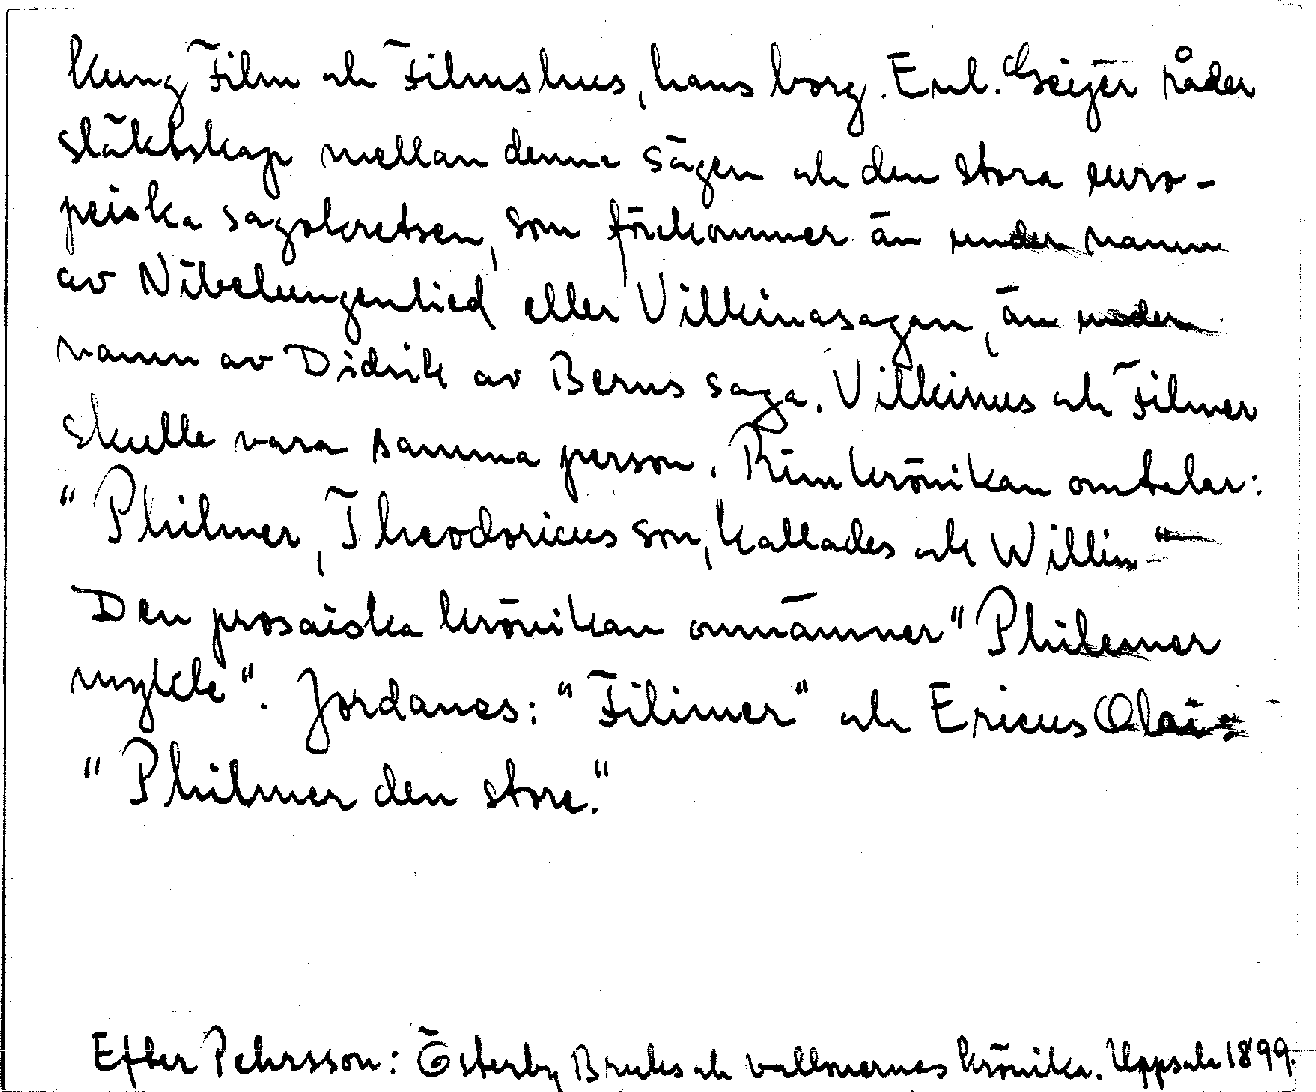 Kung Film och Filmshus, hans borg. Enl. Geijer råder
släktskap mellan denna sägen och den stora euro-
peiska sagokretsen, som förekommer än under namn
av Nibelungenlied eller Vilkinasagan, än under
namn av Didrik av Berns saga. Vilkinus och Filmer
skulle vara samma person. Rimkrönikan omtalar:
"Philmer, Theodoricus son, kallades och Willin"
Den prosaiska krönikan omnämner "Philemer
mykle". Jordanes: "Filimer" och Ericus Olai:
"Philmer den store."
Efter Pehrsson: Österby Bruks och vallonernas krönika. Uppsala 1899.